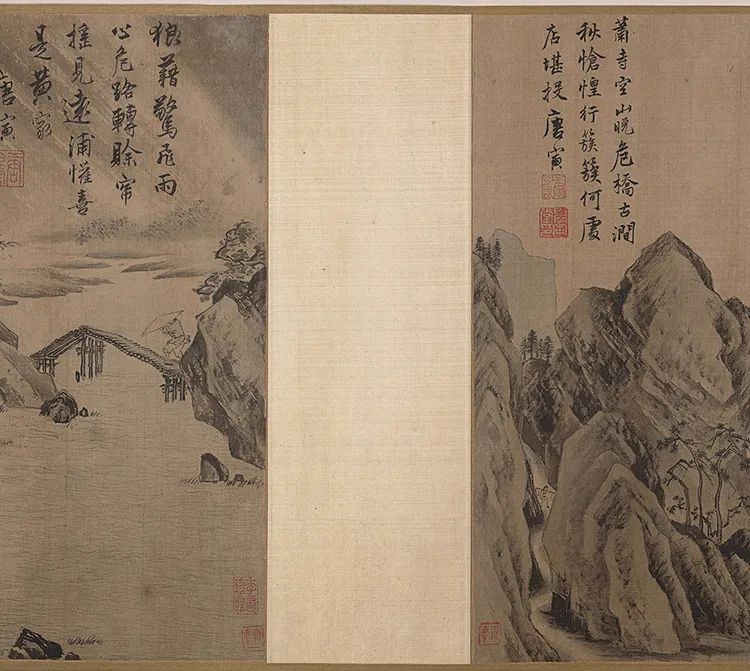 蕭寺空山晚危橋古澗
秋愴惶行簇簇何處
店堪投唐寅
狼藉驚飛雨
心危路轉賒帘
搖見遠浦懽喜
是黃家
唐寅